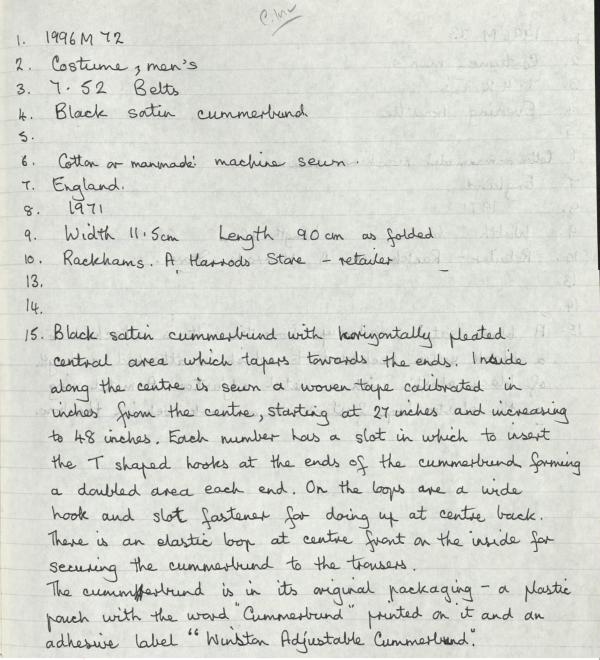 1. 1996 M 72
2. Costume, men's
3. 7.52 Belts
4. Black satin cummerbund
5.
6. Cotton or manmade: machine sewn.
7. England.
8. 1971
9. Width 11.5cm Length 90cm as folded
10. Rackhams. A Harrods Store - retailer
13.
14.
15. Black satin cummerbund with horizontally pleated
central area which tapers towards the ends. Inside
along the centre is sewn a woven tape calibrated in
inches from the centre, starting at 27 inches and increasing
to 48 inches. Each number has a slot in which to insert
the T shaped hooks at the ends of the cummerbund, forming
a doubled area each end. On the loops are a wide
hook and slot fastener for doing up at centre back.
There is an elastic loop at centre front on the inside for
securing the cummerbund to the trousers.
The cummerbund is in its original packaging - a plastic
pouch with the word "Cummerbund" printed on it and an
adhesive label "Winston Adjustable Cummerbund".